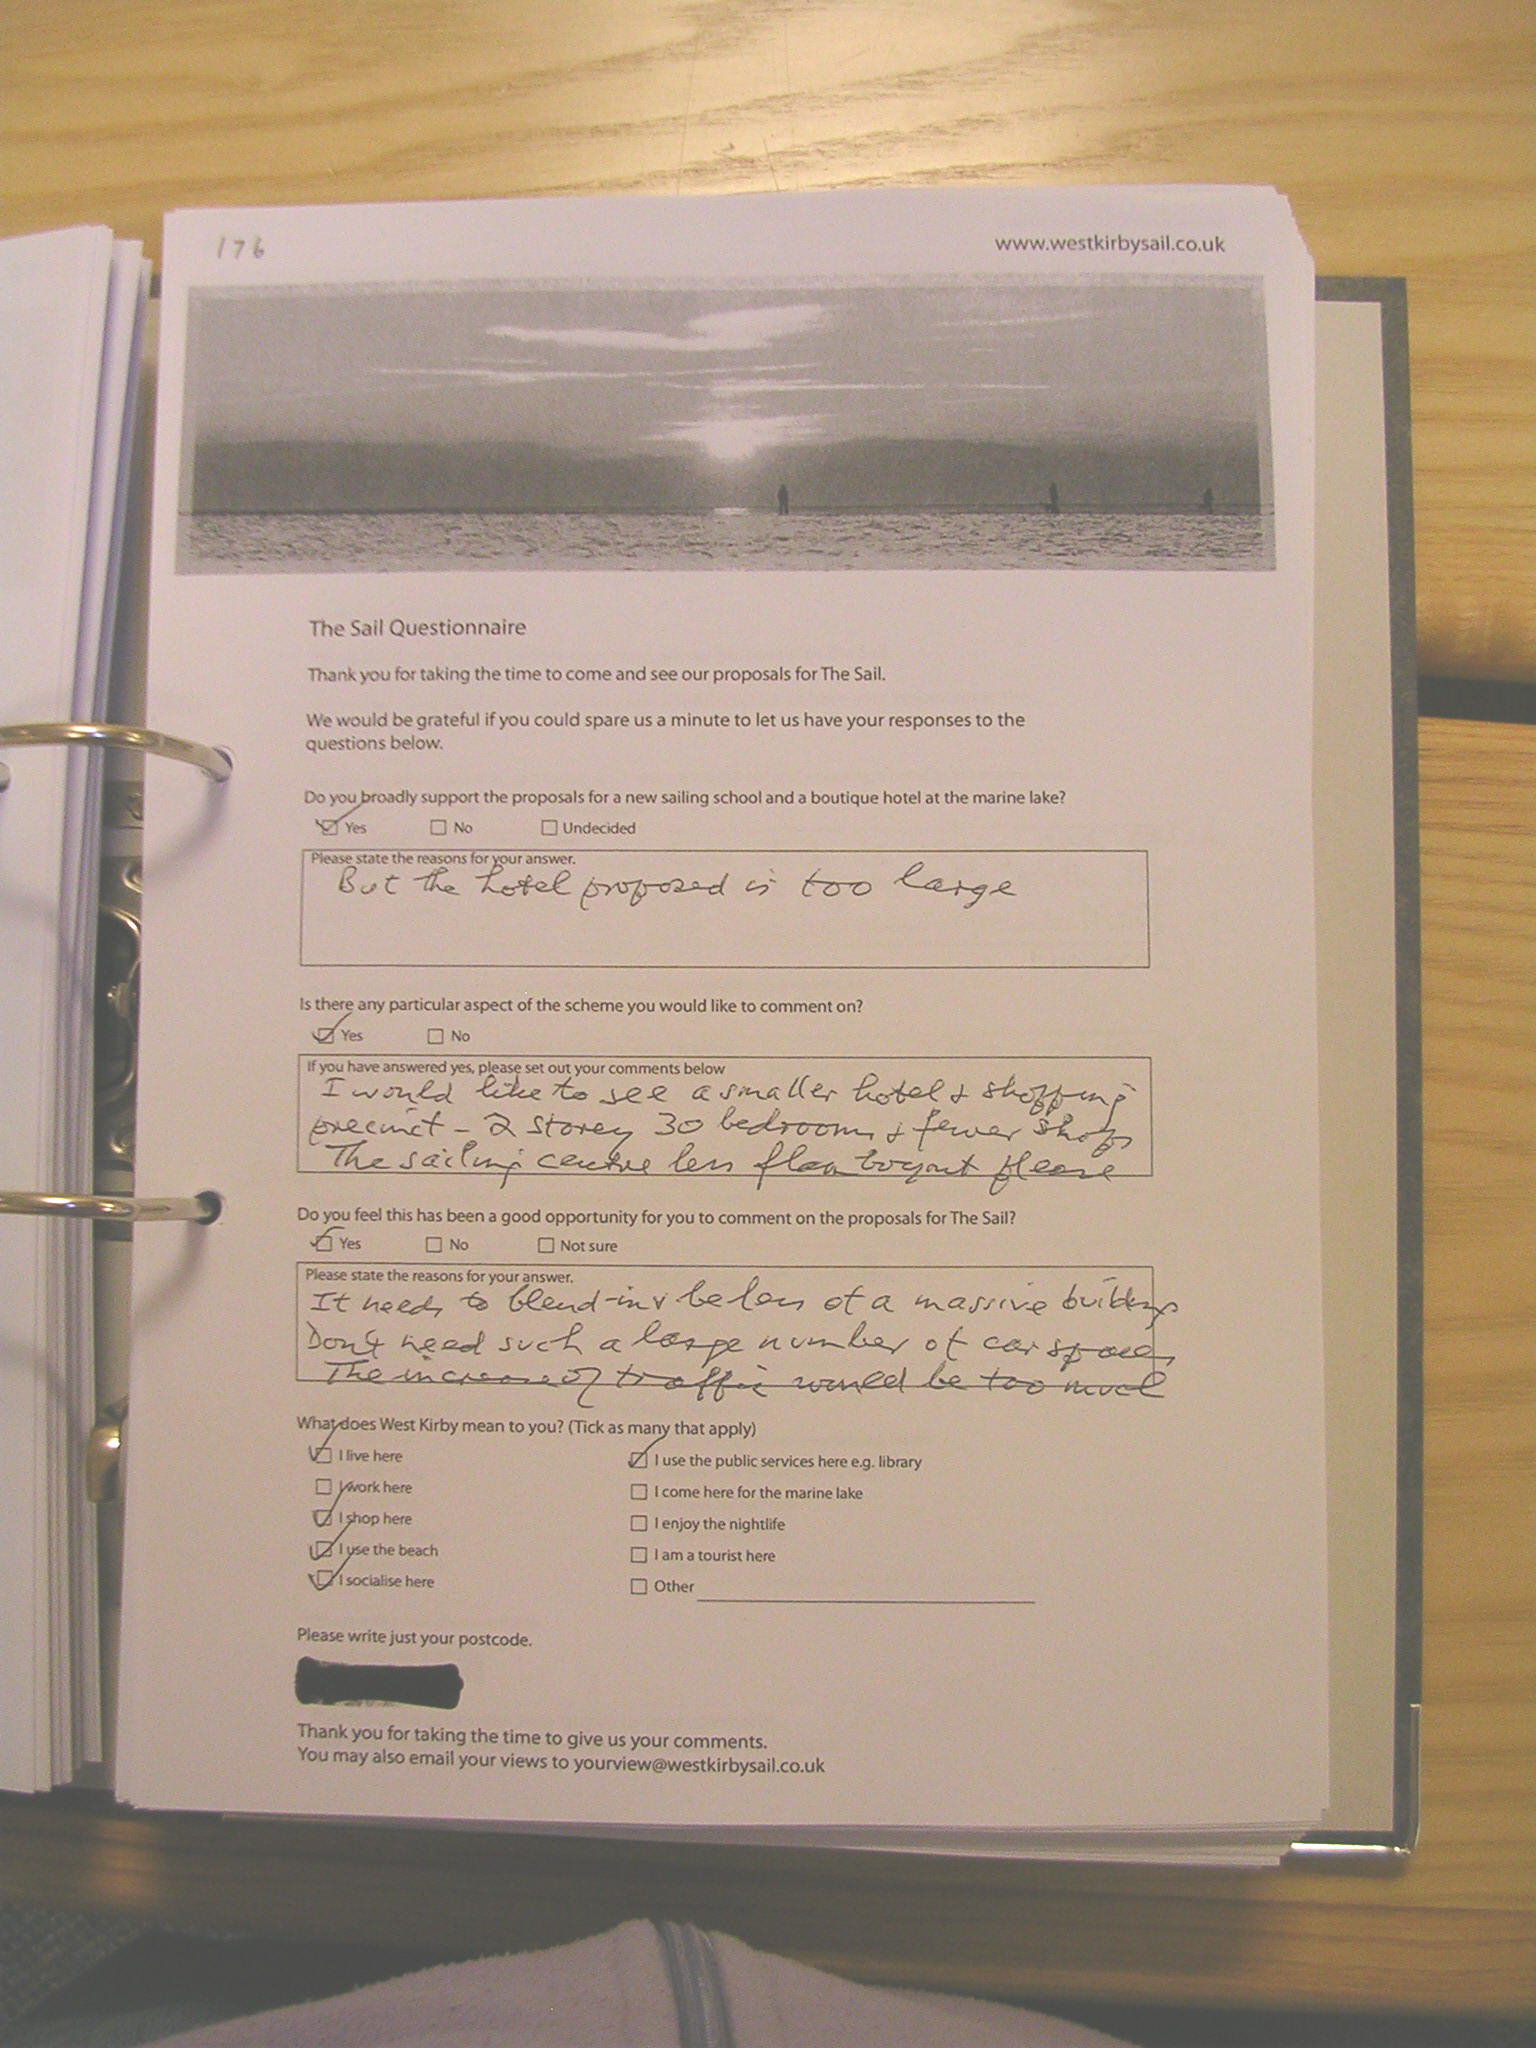 176
www.westkirbysail.co.uk
The Sail Questionnaire
Thank you for taking the time to come and see our proposals for The Sail.
We would be grateful if you could spare us a minute to let us have your responses to the
questions below.
Do you broadly support the proposals for a new sailing school and a boutique hotel at the marine lake?
Yes No Undecided
Please state the reasons for your answer.
But the hotel proposed is too large
Is there any particular aspect of the scheme you would like to comment on?
Yes No
If you have answered yes, please set out your comments below
I would like to see a smaller hotel & shopping
precinct - 2 storey 30 bedrooms & fewer shops
The sailing centre less flamboyant please
Do you feel this has been a good opportunity for you to comment on the proposals for The Sail?
Yes No Not sure
Please state the reasons for your answer.
It needs to blend-in & be less of a massive building
Don't need such a large number of car spaces
The increase of traffic would be too much
What does West Kirby mean to you? (Tick as many that apply)
I live here I use the public services here e.g. library
I work here I come here for the marine lake
I shop here I enjoy the nightlife
I use the beach I am a tourist here
I socialise here Other
Please write just your postcode.
Thank you for taking the time to give us your comments.
You may also email your views to yourview@westkirbysail.co.uk